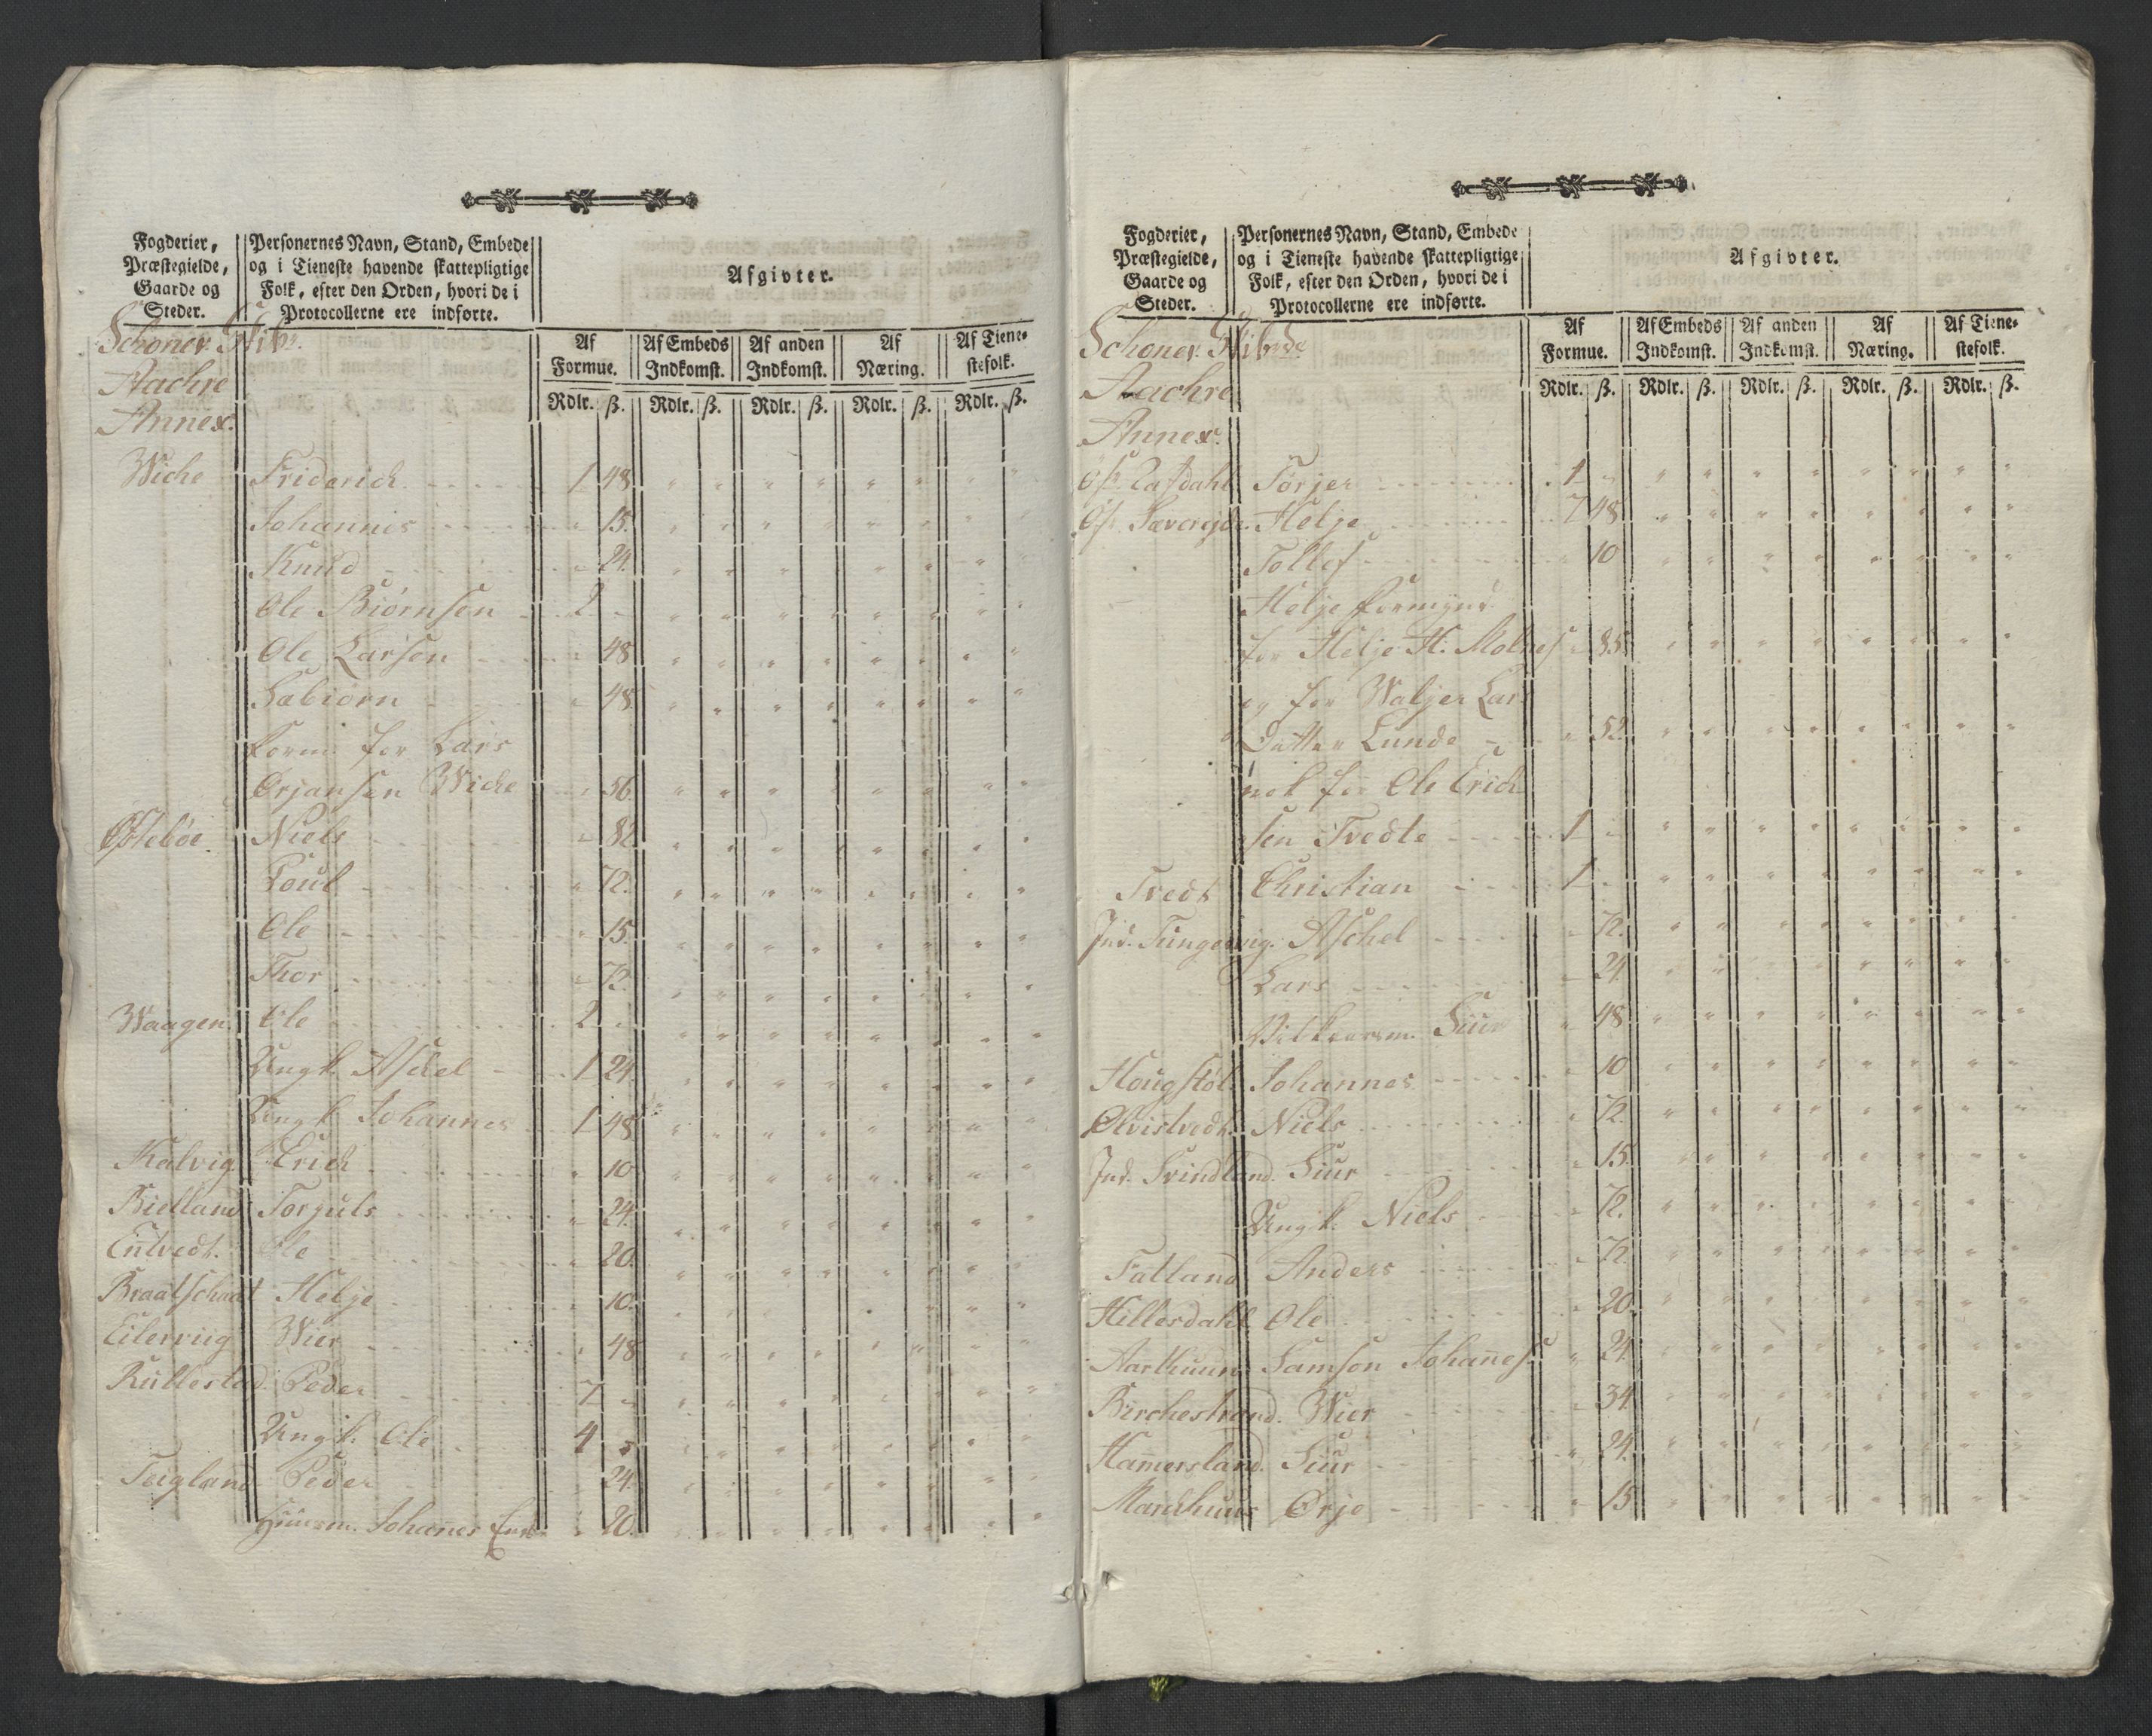 Fogderier,
Præstegielde,
Gaarde og
Steder.
Personernes Navn, Stand, Embede
og i Tieneste havende skattepligtige
Folk, efter den Orden, hvori de i
Protocollerne ere indførte.
Afgivter.
Af Formue. Af Embeds Indkomst. Af anden Indkomst. Af Næring. Af Tienestefolk.
Rdlr. ß. Rdlr. ß. Rdlr. ß. Rdlr. ß. Rdlr. ß.
Schoner.
Aachre
Annex.
Wiche Friderich 1 48
Johannes 15.
Knud 24.
Ole Biørnsen 2
Ole Larsen 48
Sæbiørn 48.
form: for Lars
Ørjansen Wiche 56.
Østebøe. Niels 82
Poul 72.
Ole 15.
Thor 72.
Waagen. Ole 2
Ungk. Aschel 1 24.
Ungk. Johannes 1 48
Kalvig Erich 10
Bielland Torjuls 24.
Ole 20.
Braatschaat Helje 10.
Eilerviig Wier 48
Rullestad. Peder 7
Ungk. Ole 4
Teigland Peder 24.
Huusm. Johanes 20.
Fogderier,
Præstegielde,
Gaarde og
Steder.
Personernes Navn, Stand, Embede
og i Tieneste havende skattepligtige
Folk, efter den Orden, hvori de i
Protocollerne ere indførte.
Afgivter.
Af Formue. Af Embeds Indkomst. Af anden Indkomst. Af Næring. Af Tienestefolk.
Rdlr. ß. Rdlr. ß. Rdlr. ß. Rdlr. ß. Rdlr. ß.
Schoner.
Aachre
Annex.
Torjer 1
Helje 7 48
Tollef 10
Helje formynd.
for Helje H. Molnes 85
og for Waljer Lars
Datter Lunde 52
nok for Ole Erich
sen Tvedte 1
Tvedt Christian 1
Ind. Tungesvig. Aschel 72.
Lars 24.
Vilkaarsm. Siur 48
Hougstøl Johannes 10
Ølvistvedt. Niels 72.
Ind. Svindland. Siur 15.
Ungk. Niels 72.
Fatland Anders 72
Hillesdahl Ole 20
Aarthuun Samson Johanes. 24.
Birchestrand. Wier 34
Hamersland. Siur 24.
Mandhuus Ørje 15